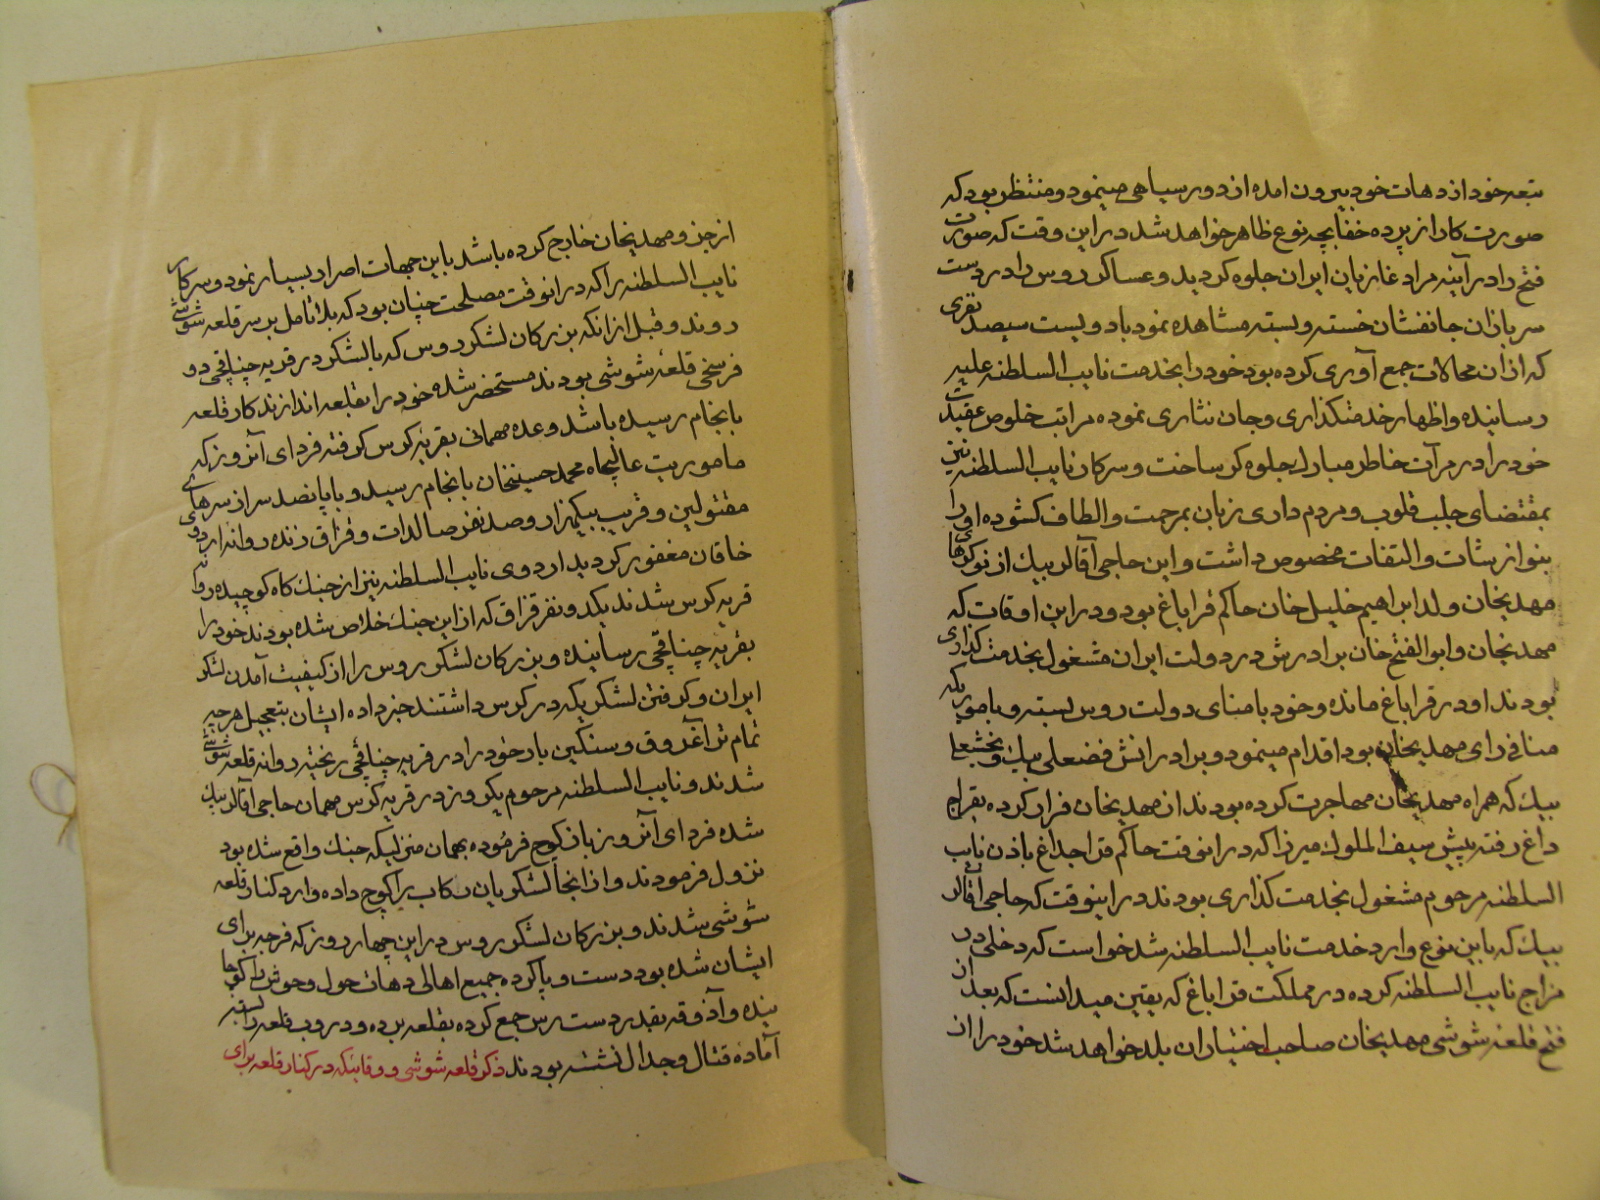 تبعه خود از دهات خود بیرون امده از دور سیاهی مینمود و منتظر بود که
صورت کار از پرده خفا بچه نوع ظاهر خواهد شد در این وقت که صورت
فتح را در آینه مراد غازیان ایران جلوه کر دید و عساکر روس را در دست
سربازان جانفشان خسته و بسته مشاهده نمود با دویست سیصد نفری
که از ان محالات جمع آوری کرده بود خود را بخدمت نایب السلطنه علیه
رسانیده و اظهار خدمتکذاری و جان نثاری نموده مراتب خلوص عقیدت
خود را در مرآت خاطر مبارک جلوه کر ساخت و سرکار نایب السلطنه نیز
بمقتضای جلب قلوب و مردم داری زبان بمرحمت والطاف کشوده او را
بنوازشات و التفات مخصوص داشت و این حاجی آقالر بیک از نوکرهای
مهدیخان ولد ابراهیم خلیل خان حاکم قراباغ بود و در این اوقات که
مهدیخان و ابوالفتح خان برادرش در دولت ایران مشغول بخدمت کذاری
بودند او در قراباغ مانده و خود با منای دولت روس بسته و بامو ریکه
منافی رای مهدیخان بود اقدام مینمود و برادرانش فضعلی بیک و بخشعلی
بیک که همراه مهدیخان مهاجرت کرده بودند از مهدیخان فرار کرده بقراجه
داغ رفته پیش سیف الملوک میرزا که در انوقت حاکم قراجداغ باذن نایب
السلطنه مرحوم مشغول بخدمت کذاری بودند در اینوقت که حاجی آقالر
بیک که باین نوع وارد خدمت نایب السلطنه شد خواست که دخلی در
مزاج نایب السلطنه کرده در مملکت قراباغ که یقین میدانست که بعد از
فتح قلعه شوشی مهدیخان صاحب اختیار ان بلد خواهد شد خود را از ان
از جزو مهدیخان خارج کرده باشد باین جهات اصرار بسیار نمود و سرکار
نایب السلطنه را که در انوقت مصلحت چنان بود که بلا تامل بر سر قلعه شوشی
روند و قبل از انکه بزرکان لشکر روس که با لشکر در قریه چناقچی دو
فرسخی قلعه شوشی بودند مستحضر شده خود را بقلعه اندازند کار قلعه
بانجام رسیده باشد وعده مهمانی بقریه کرس کرفته فردای آنروز که
ماموریت عالیجاه محمد حسینخان بانجام رسید و با پانصد سر از سرهای
مقتولین و قریب بیکهزار و صد نفر صالدات و قزاق زنده روانه اردوی
خاقان مغفور کردید اردوی نایب السلطنه نیز از جنک کاه کوچیده روانه
قریه کرس شدند یکدو نفر قزاق که از این جنک خلاص شده بودند خود را
بقریه چناقچی رسانیده و بزرکان لشکر روس را از کیفیت آمدن لشکر
ایران و کرفتن لشکریکه در کرس داشتند خبر داده ایشان بتعجیل هر چه
تمام تر آغروق و سنکین بار خود را در قریه چناقچی ریخته روانه قلعه شوشی
شدند و نایب السلطنه مرحوم یکروز در قریه کرس مهمان حاجی آقالر بیک
شده فردای آنروز باز کوچ فرموده بهمان منزلیکه جنک واقع شده بود
نزول فرمودند و از انجا لشکریان رکاب را کوچ داده وارد کنار قلعه
شوشی شدند و بزرکان لشکر روس در این چهار روز که فرجه برای
ایشان شده بود دست و پا کرده جمیع اهالی دهات حول و حوش را کوچا
نیده و آذوقه بقدر دست رس جمع کرده بقلعه برده و دروب قلعه را بسته
آماده قتال و جدال نشسته بودند ذکر قلعه شوشی و وقایعیکه در کنار قلعه برای